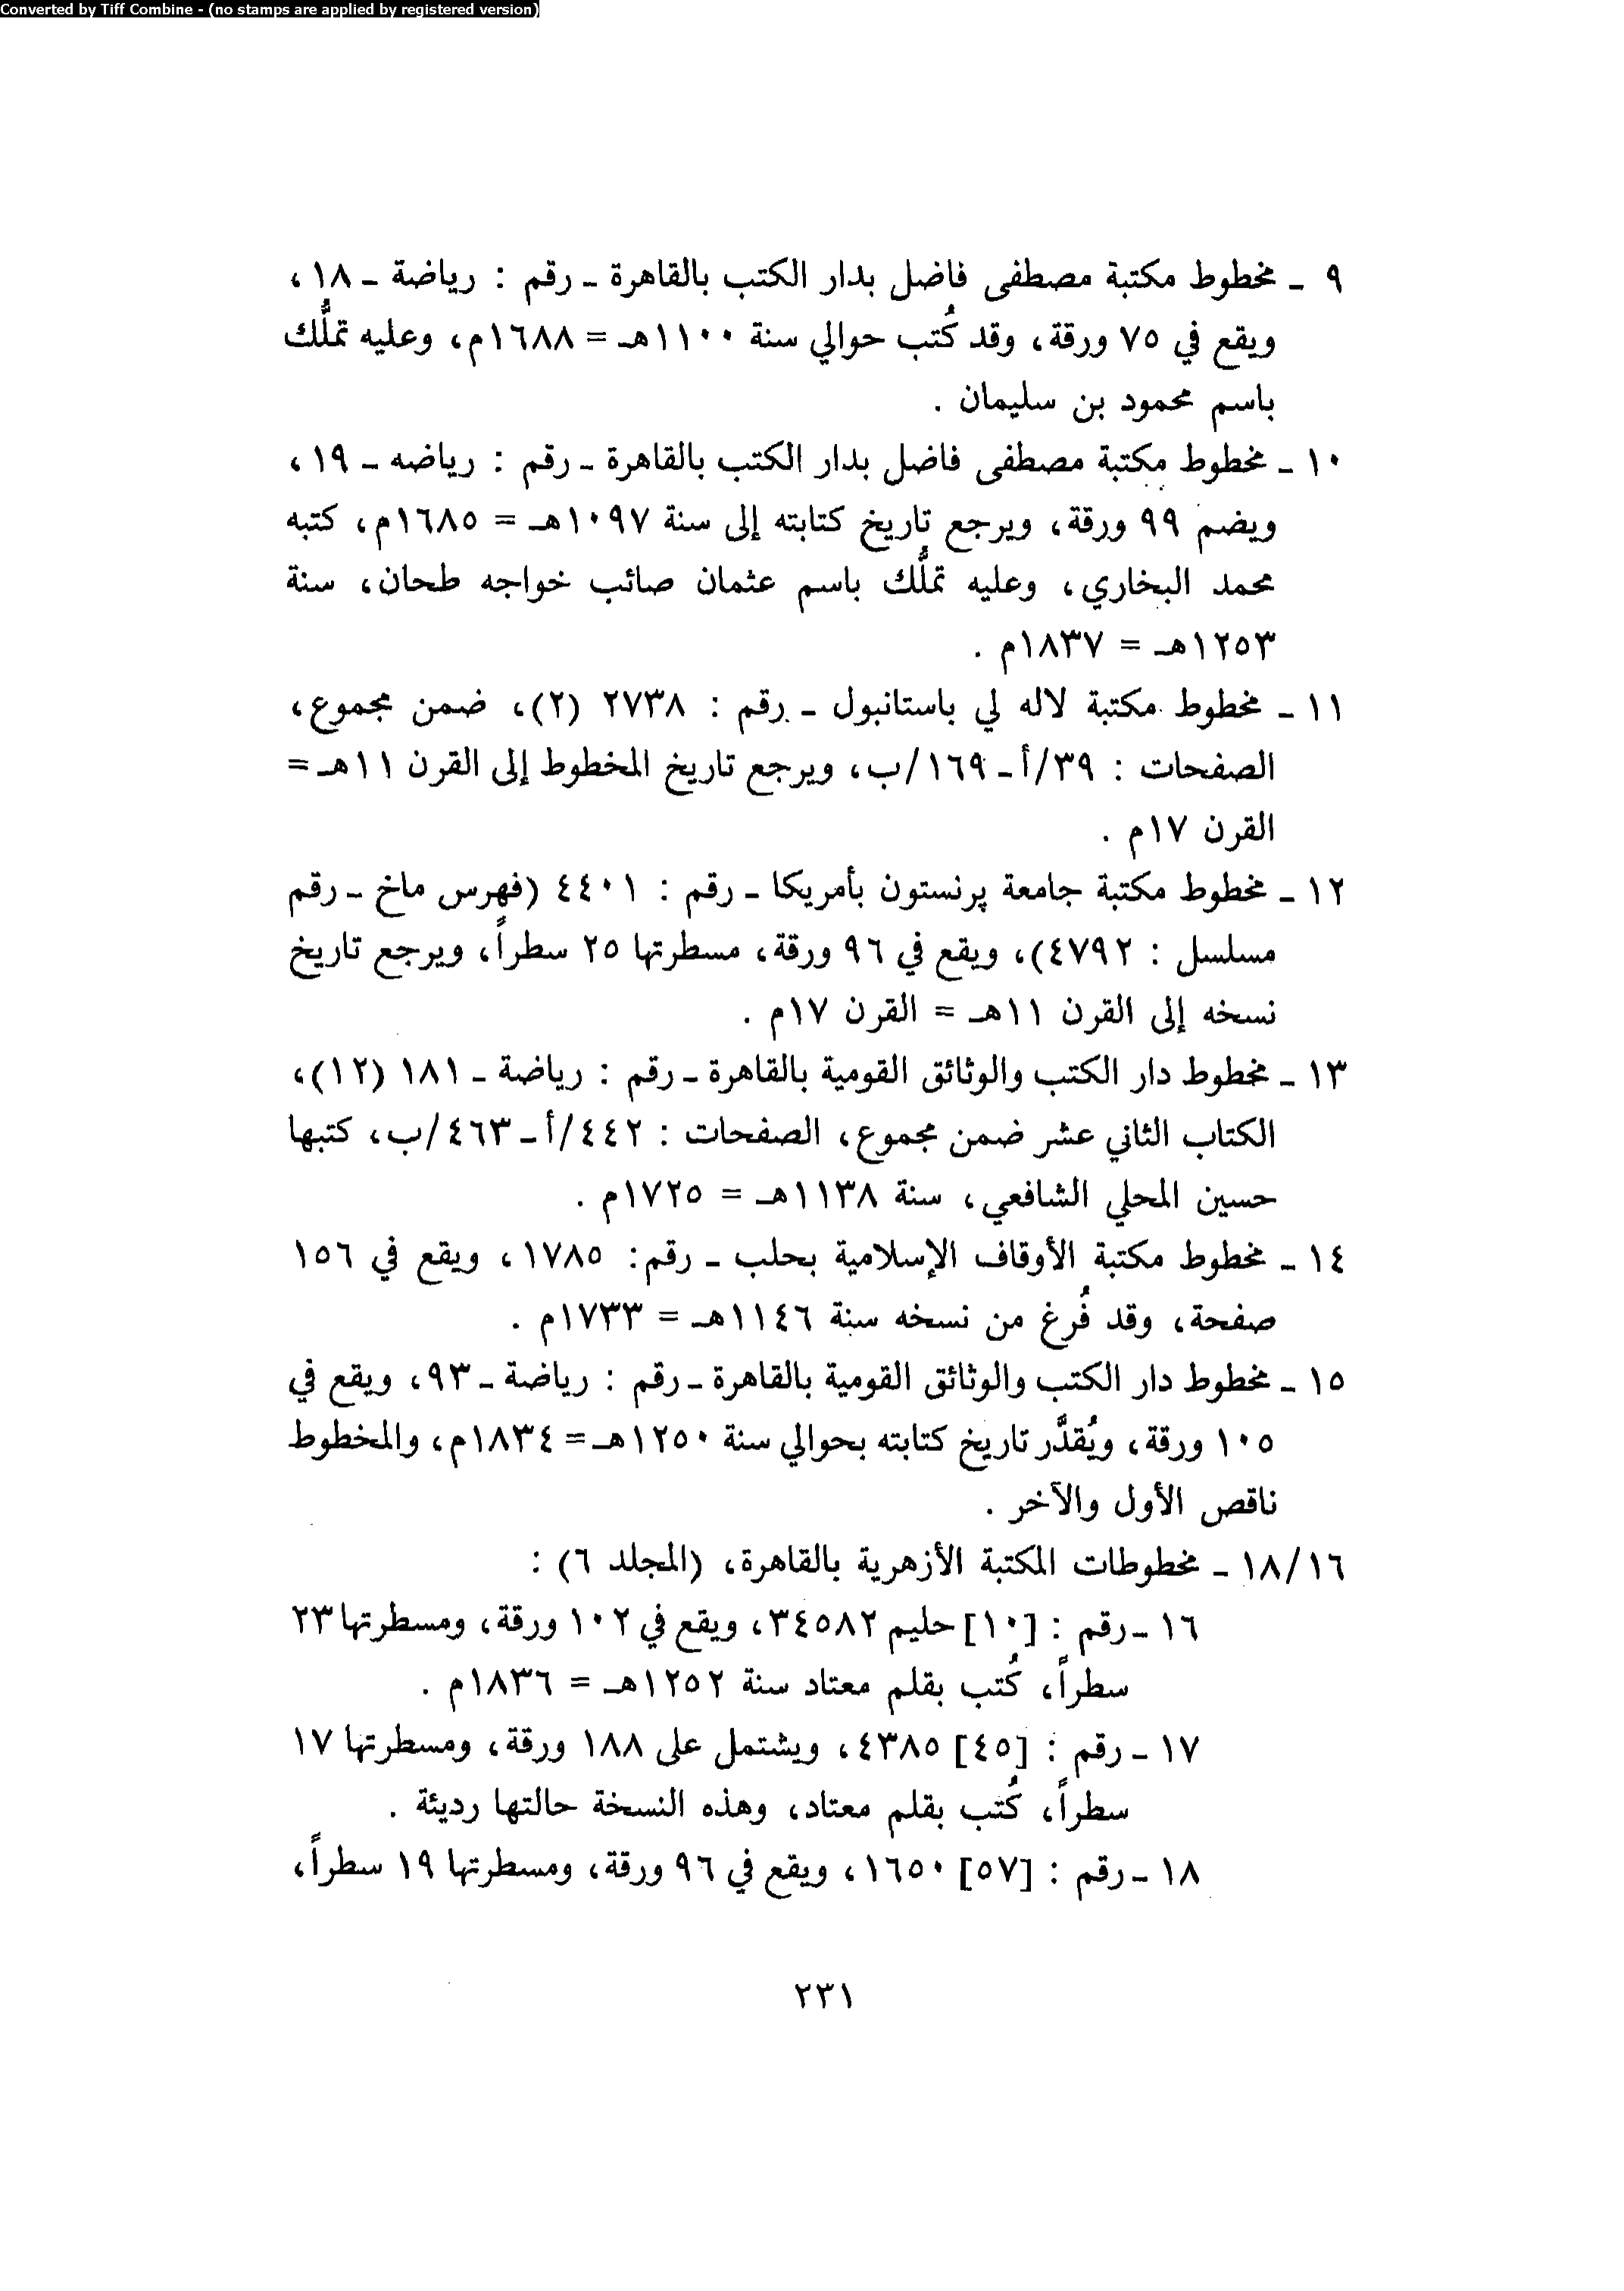 Converted by Tiff Combine - (no stamps are applied by registered version)
٩ ـ مخطوط مكتبة مصطفى فاضل بدار الكتب بالقاهرة ـ رقم : رياضة ـ ١٨،
ويقع في ٧٥ ورقة، وقد كُتب حوالي سنة ١١٠٠هـ = ١٦٨٨م، وعليه تملُّك
باسم محمود بن سليمان .
١٠ ـ مخطوط مكتبة مصطفى فاضل بدار الكتب بالقاهرة ـ رقم : رياضه ـ ١٩،
ويضم ٩٩ ورقة، ويرجع تاريخ كتابته إلى سنة ١٠٩٧هـ = ١٦٨٥م، كتبه
محمد البخاري، وعليه تملُّك باسم عثمان صائب خواجه طحان، سنة
١٢٥٣هـ = ١٨٣٧م .
١١ ـ مخطوط مكتبة لاله لي باستانبول ـ رقم : ٢٧٣٨ (٢)، ضمن مجموع،
الصفحات : ٣٩/أ ـ ١٦٩/ب، ويرجع تاريخ المخطوط إلى القرن ١١هـ =
القرن ١٧م .
١٢ ـ مخطوط مكتبة جامعة پرنستون بأمريكا ـ رقم : ٤٤٠١ (فهرس ماخ ـ رقم
مسلسل : ٤٧٩٢)، ويقع في ٩٦ ورقة، مسطرتها ٢٥ سطراً، ويرجع تاريخ
نسخه إلى القرن ١١هـ = القرن ١٧م .
١٣ ـ مخطوط دار الكتب والوثائق القومية بالقاهرة ـ رقم : رياضة ـ ١٨١ (١٢)،
الكتاب الثاني عشر ضمن مجموع، الصفحات : ٤٤٢/أ ـ ٤٦٣/ب، كتبها
حسين المحلي الشافعي، سنة ١١٣٨هـ = ١٧٢٥م .
١٤ ـ مخطوط مكتبة الأوقاف الإسلامية بحلب ـ رقم: ١٧٨٥، ويقع في ١٥٦
صفحة، وقد فُرغ من نسخه سنة ١١٤٦هـ = ١٧٣٣م .
١٥ ـ مخطوط دار الكتب والوثائق القومية بالقاهرة ـ رقم : رياضة ـ ٩٣، ويقع في
١٠٥ ورقة، ويُقدَّر تاريخ كتابته بحوالي سنة ١٢٥٠هـ = ١٨٣٤م، والمخطوط
ناقص الأول والآخر .
١٨/١٦ ـ مخطوطات المكتبة الأزهرية بالقاهرة، (المجلد ٦) :
١٦ ـ رقم : [١٠] حليم ٣٤٥٨٢، ويقع في ١٠٢ ورقة، ومسطرتها ٢٣
سطراً، كُتب بقلم معتاد سنة ١٢٥٢هـ = ١٨٣٦م .
١٧ ـ رقم : [٤٥] ٤٣٨٥، ويشتمل على ١٨٨ ورقة، ومسطرتها ١٧
سطراً، كُتب بقلم معتاد، وهذه النسخة حالتها رديئة .
١٨ ـ رقم : [٥٧] ١٦٥٠، ويقع في ٩٦ ورقة، ومسطرتها ١٩ سطراً،
٢٣١